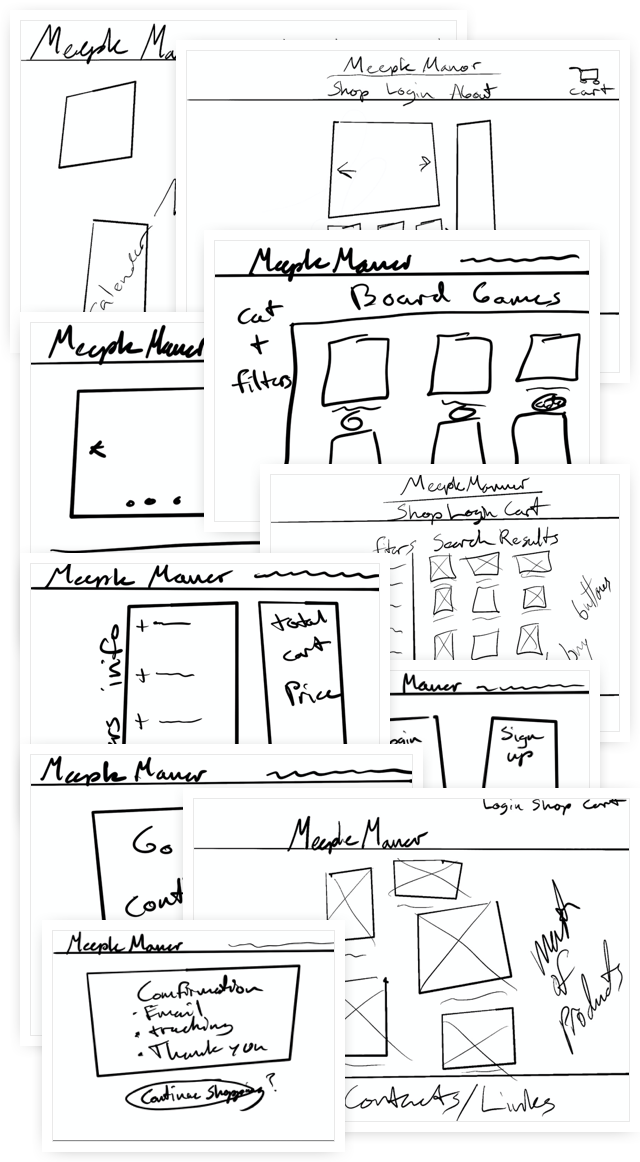 Meeple Ma
Calender
Meeple Manor
Shop Login About
cart
Meeple Manor
Board Games
cat
+
filters
Meeple Manor
Meeple Manor
Shop Login Cart
Search Results
buy buttons
Meeple Manor
info
+
+
+
total
cart
Price
Manor
Sign
up
Meeple Manor
Go
Cont
Login Shop Cart
Meeple Manor
of
Products
Contacts/Links
Meeple Manor
Confirmation
• Email
• tracking
• Thank you
Continue Shopping?